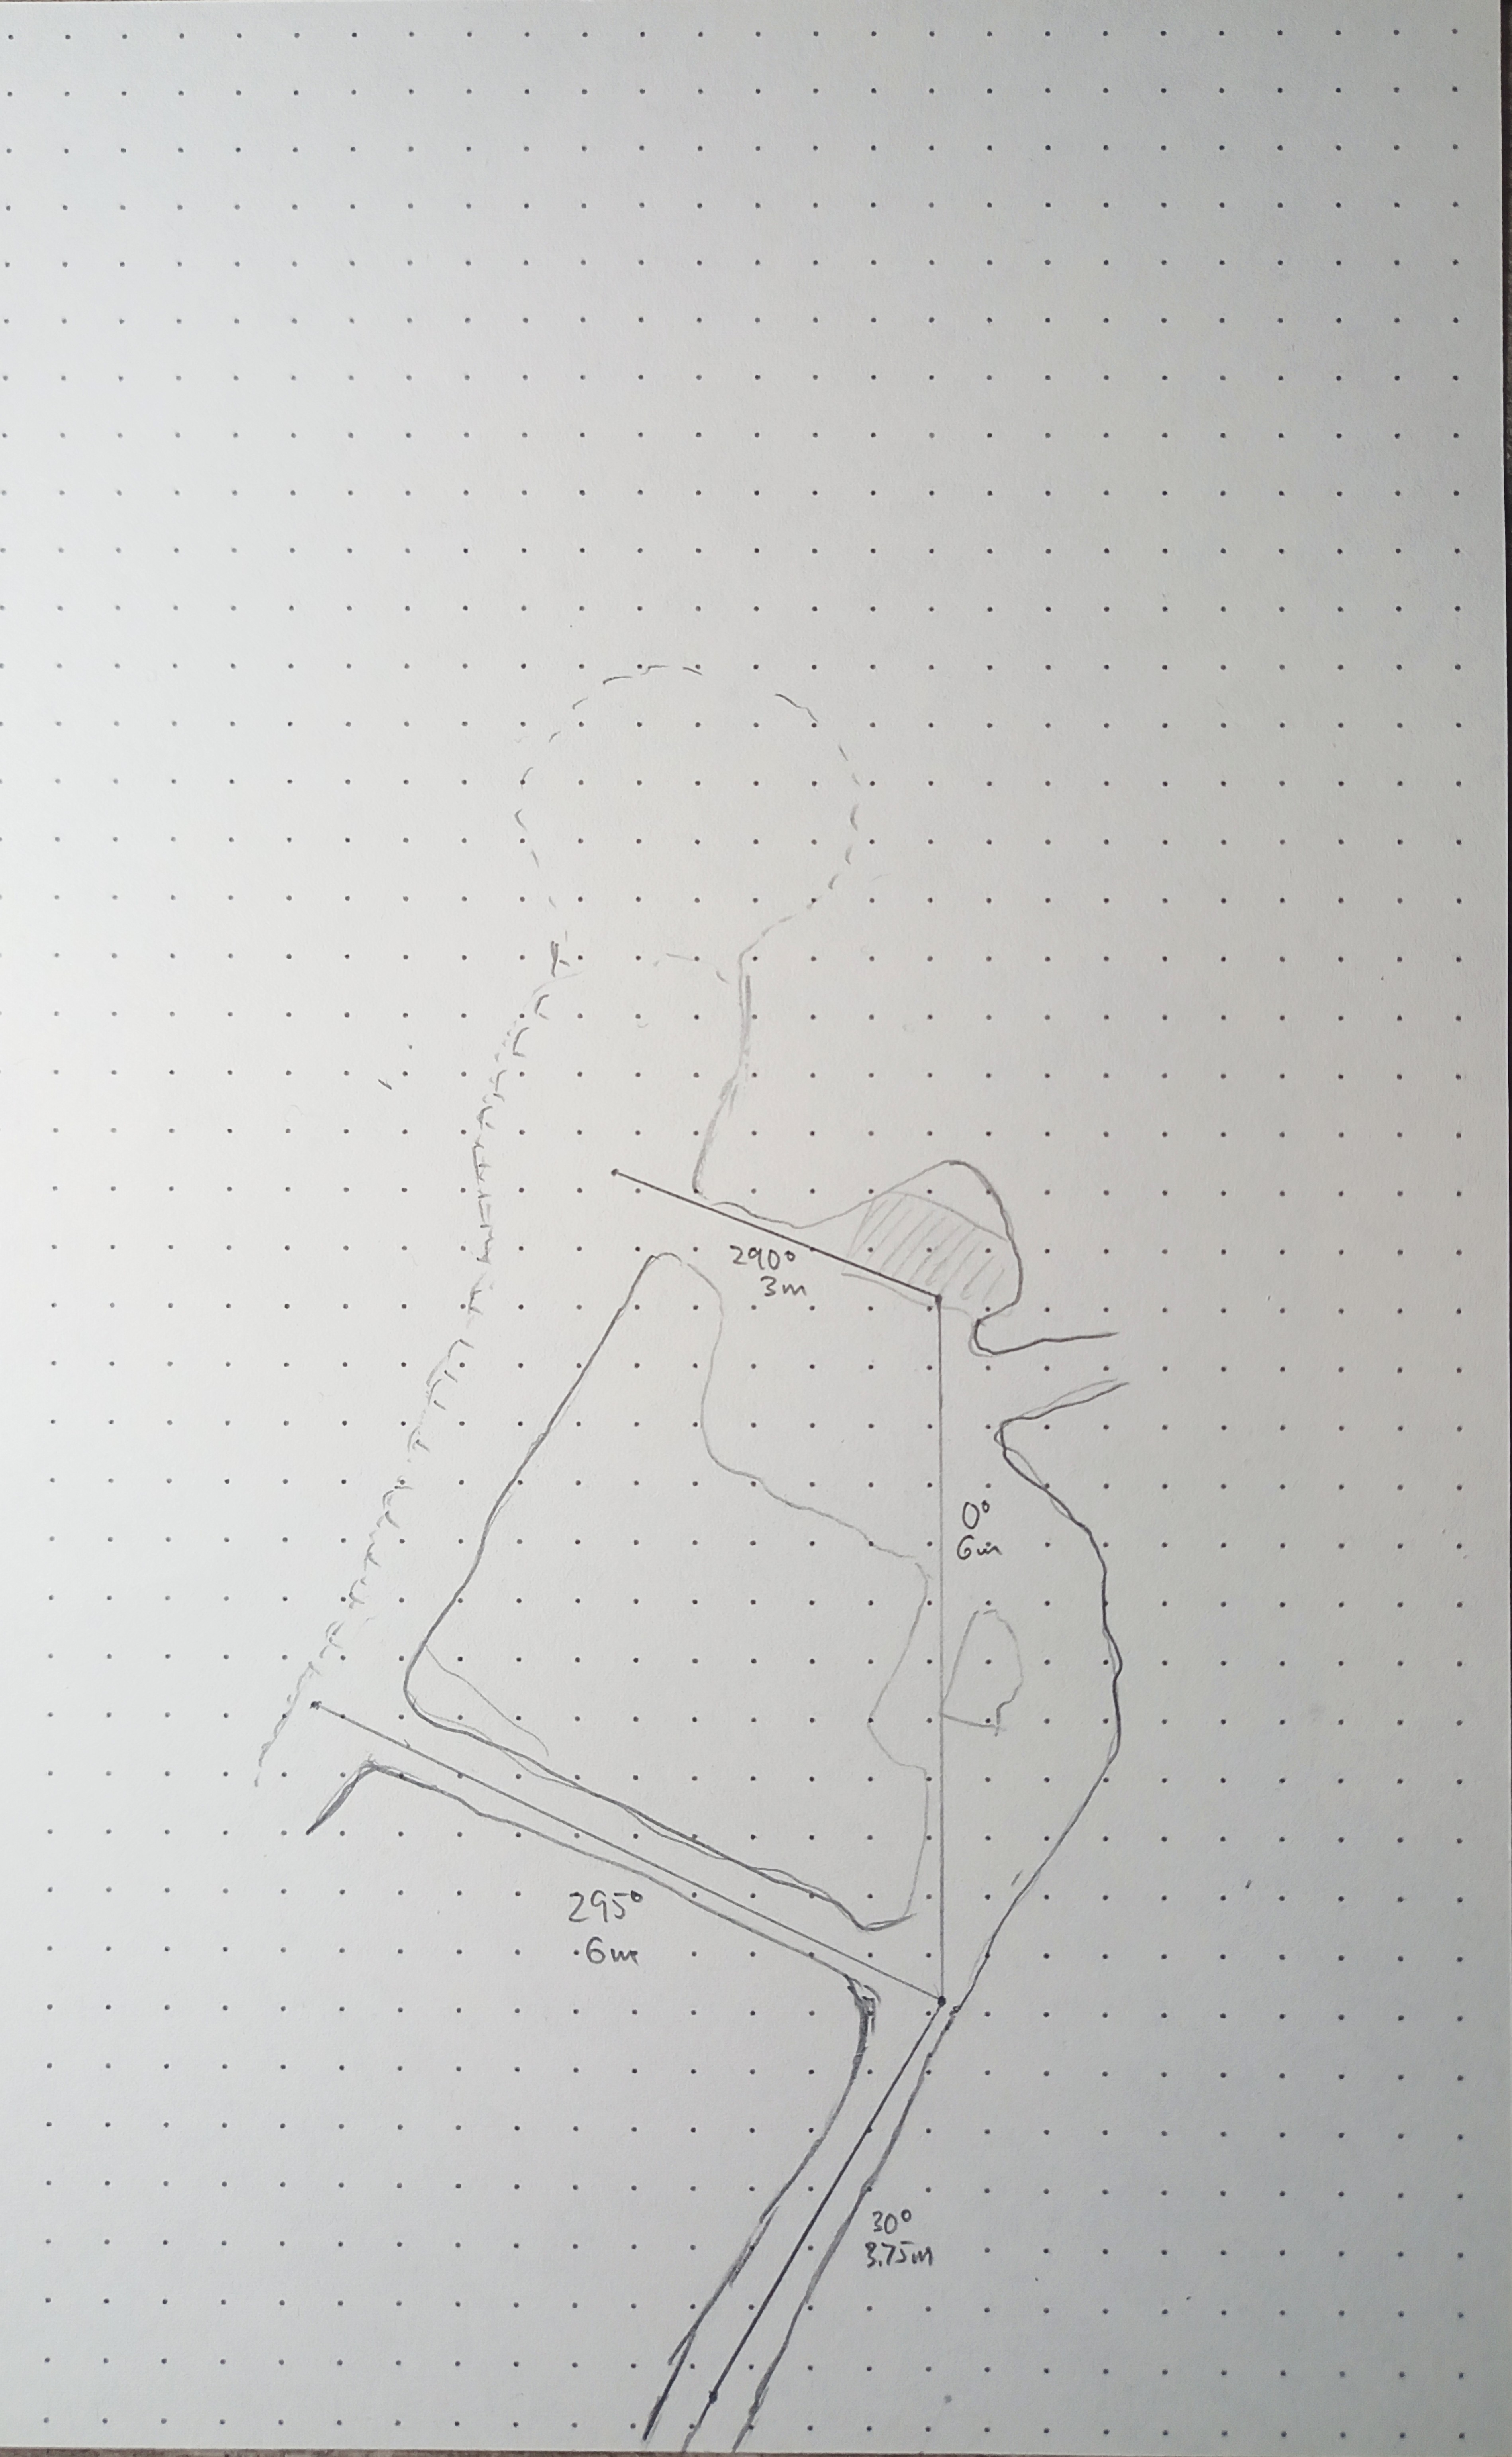 290°
3m
0°
6m
295°
6m
30°
3.75m